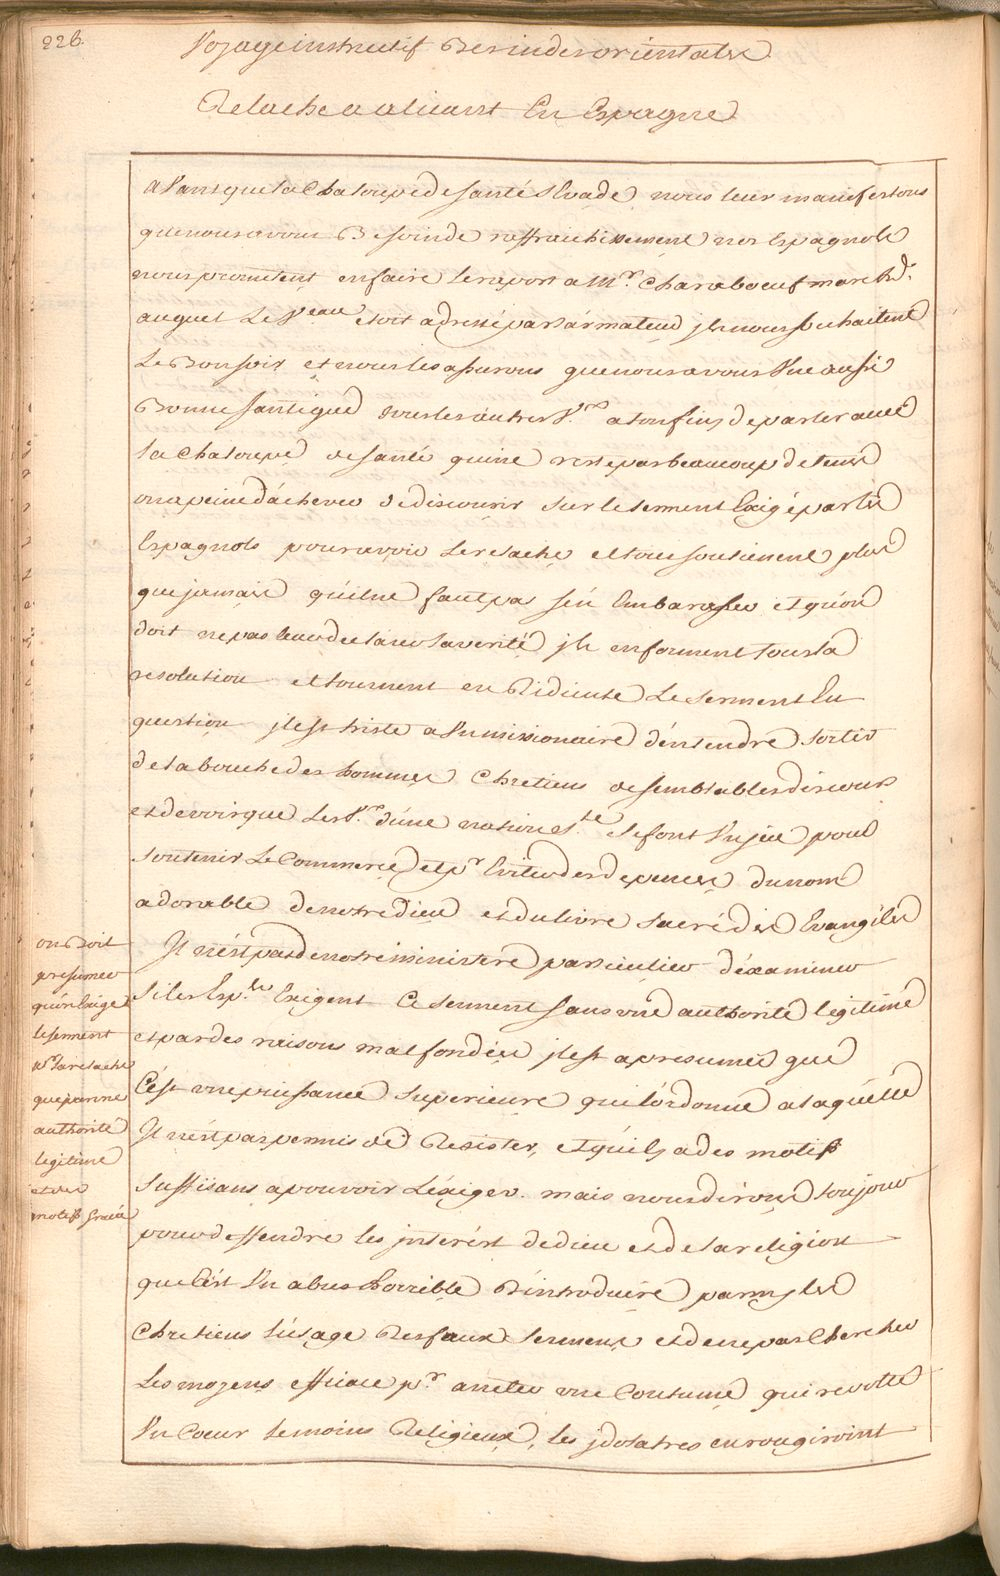 226.
Voyage instructif Des indes orientales
Relache a alicant En Espagne
avant que la Chaloupe de santé s'Evade nous leur manifestons
que nous avons Besoin de raffraichissement nos Espagnols
nous prometent en faire le raport a Mr. Charaboeuf march.d
auquel Le Veau etoit adressé par l'armateur jls nous souhaitent
Le Bonsoir et nous les assurons que nous avons Eue aussi
Bonne santé que tous les autres a son fins de parler avec
la Chaloupe de santé qui ne reste pas beaucoup de tems
on a peine d'achever de discourir sur le serment Exigé par les
Espagnols pour avoir le relache et tous soutienent plus
que jamais qu'il ne faut pas s'en Embarasser et qu'on
doit ne pas leur declarer la verité jls en forment tous la
resolution et tournent en Ridicule Le serment En
question jl est triste a Vn missionaire d'entendre sortir
de la bouche des hommes Chretiens de semblables discours
et de voir que les Vrs d'une nation Ste se font Vn jeu pour
soutenir Le Commerce et pr Eviter des depences du nom
adorable de notre dieu et du livre sacré des Evangiles
Jl n'est pas de notre ministere particulier d'examiner
si les Esp.ls Exigent Ce serment sans une authorité legitime
et par des raisons mal fondées jl est a presumer que
C'est une puissance superieure qui l'ordonne a laquelle
Jl n'est pas permis de Resister, et qu'ils a des motifs
suffisans a pouvoir L'exiger. mais nous dirons toujour
pour deffendre les jnterêst de dieu et de la religion
que C'est Vn abus horrible D'introduire parmy les
Chretiens l'usage Des faux serments et de ne pas Chercher
Les moyens efficace pr. arreter une Coutume qui revolte
Vn Coeur le moins Religieux, les jdolatres en rougiroint
on Doit
presumer
qu'on Exige
le serment
pr la relache
que par une
authorité
legitime
et des
motifs Graves